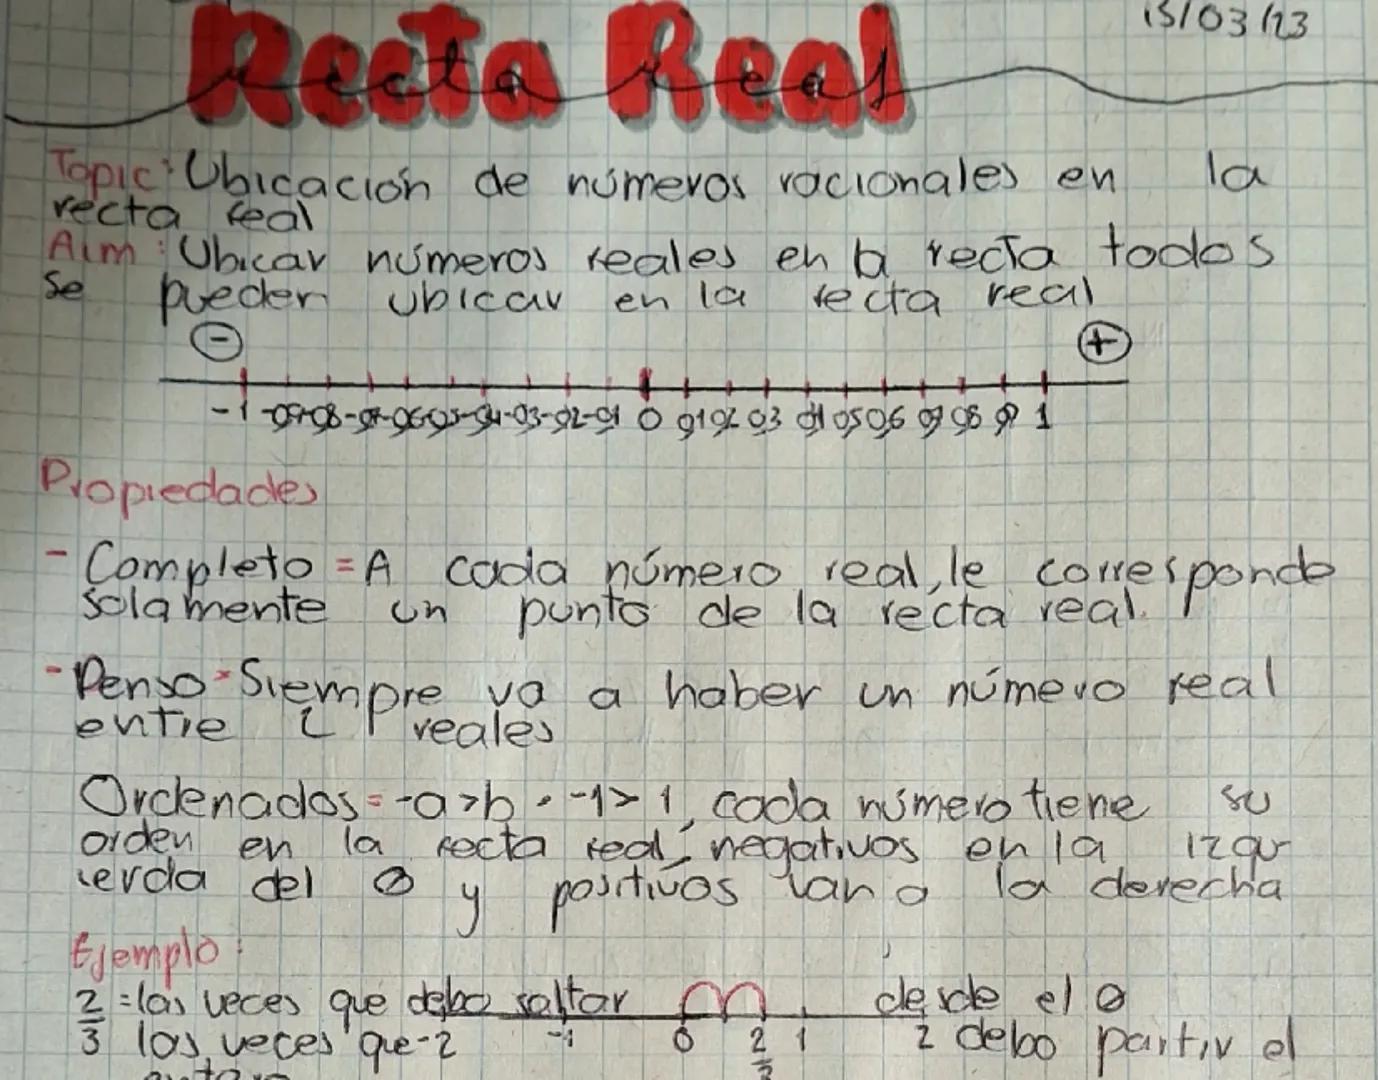 15/03/23
Recta Real
recta real
Topic: Ubicación de números racionales en la
recta real
Aim: Ubicar números reales en la recta todos
se pueden ubicar en la recta real
- +
-1 -0.9 -0.8 -0.7 -0.6 -0.5 -0.4 -0.3 -0.2 -0.1 0 0.1 0.2 0.3 0.4 0.5 0.6 0.7 0.8 0.9 1
Propiedades
- Completo = A cada número real, le corresponde
solamente un punto de la recta real.
- Denso = Siempre va a haber un número real
entre 2 reales
Ordenados = -a>b · -1> 1, cada número tiene su
orden en la recta real, negativos en la izqu
ierda del 0 y positivos van a la derecha
Ejemplo:
2/3 = las veces que debo saltar desde el 0
los veces que -2 -1 0 2/3 1 2 debo partir el